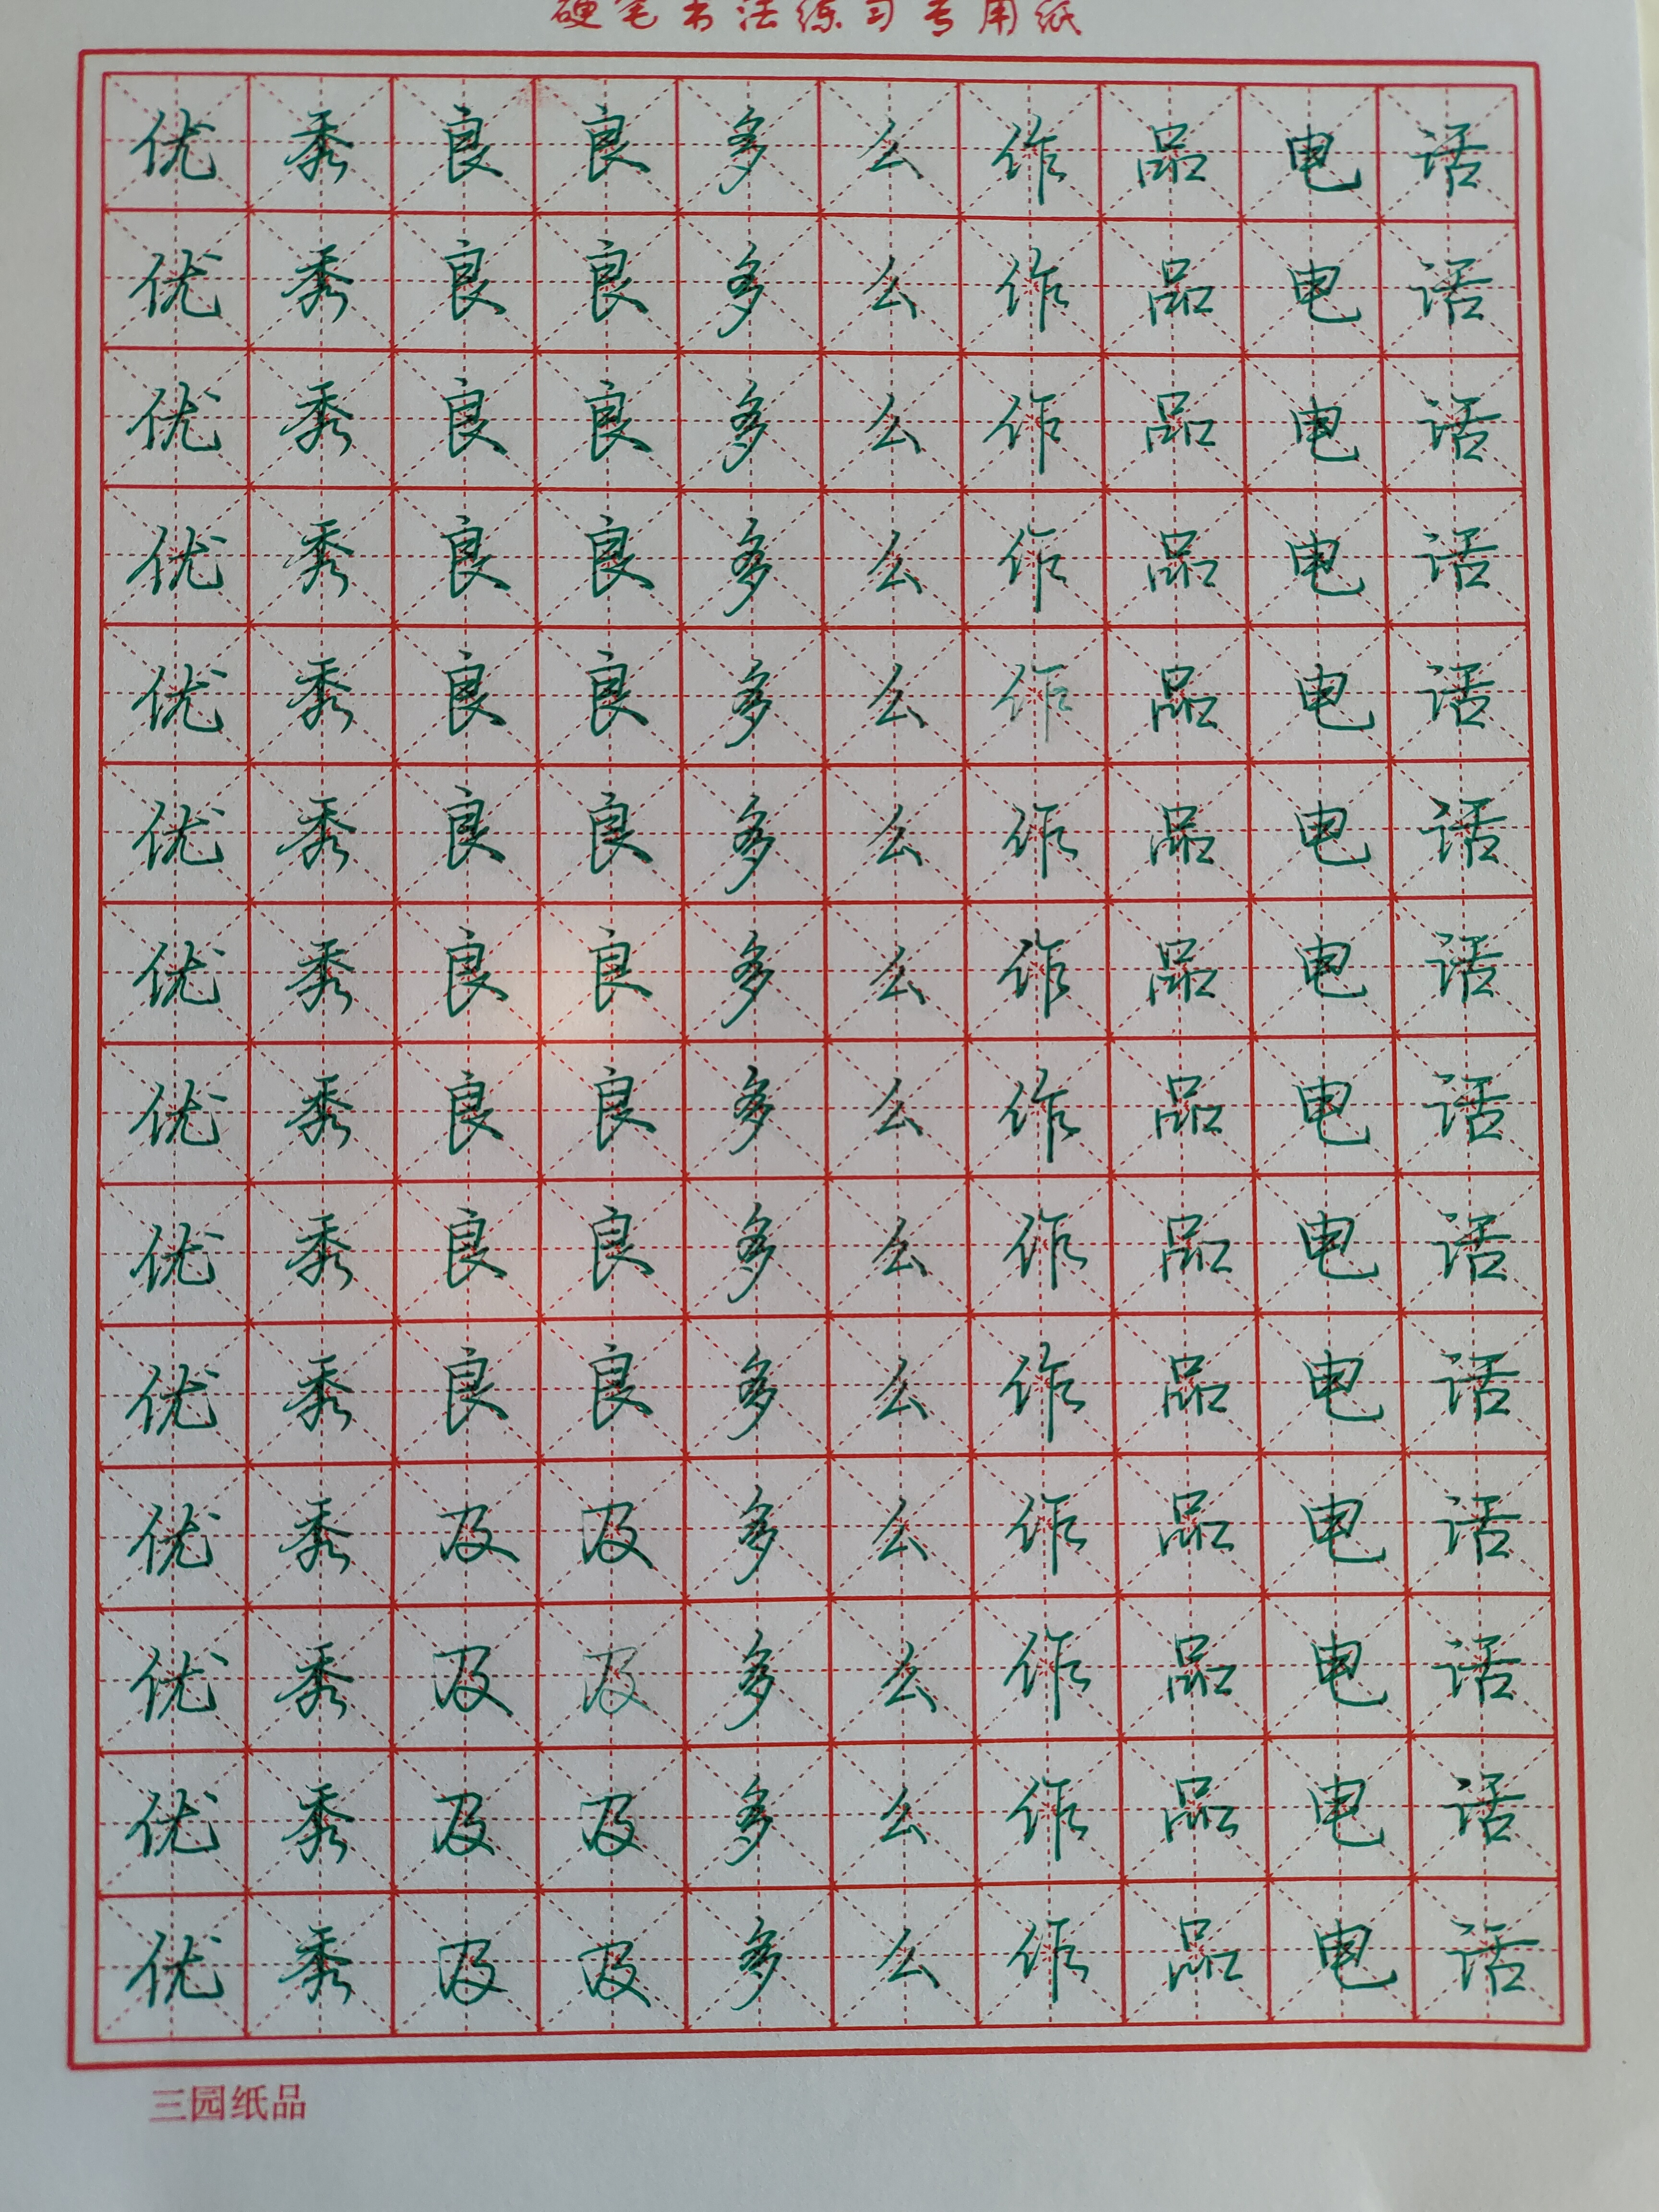 硬笔书法练习专用纸
优秀良良多么作品电话
优秀良良多么作品电话
优秀良良多么作品电话
优秀良良多么作品电话
优秀良良多么作品电话
优秀良良多么作品电话
优秀良良多么作品电话
优秀良良多么作品电话
优秀良良多么作品电话
优秀良良多么作品电话
优秀及及多么作品电话
优秀及及多么作品电话
优秀及及多么作品电话
优秀及及多么作品电话
三园纸品